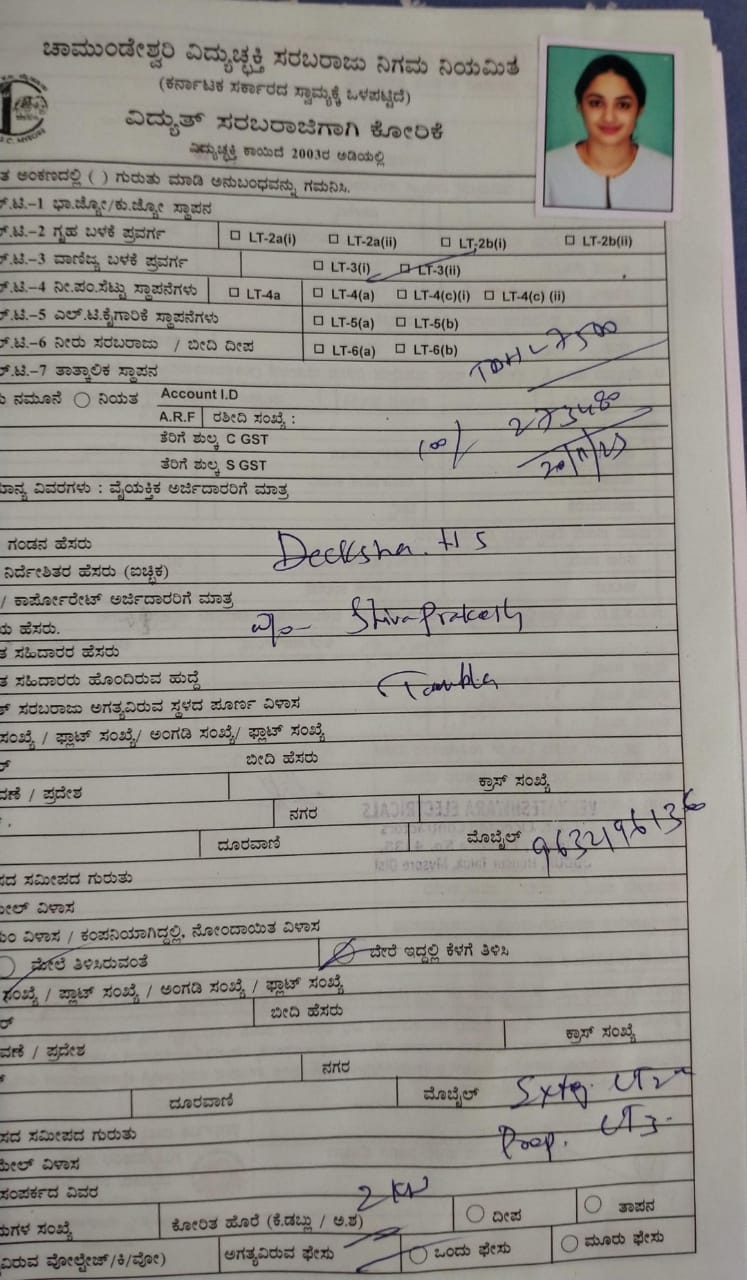 ಚಾಮುಂಡೇಶ್ವರಿ ವಿದ್ಯುಚ್ಛಕ್ತಿ ಸರಬರಾಜು ನಿಗಮ ನಿಯಮಿತ
(ಕರ್ನಾಟಕ ಸರ್ಕಾರದ ಸ್ವಾಮ್ಯಕ್ಕೆ ಒಳಪಟ್ಟಿದೆ)
ವಿದ್ಯುತ್ ಸರಬರಾಜಿಗಾಗಿ ಕೋರಿಕೆ
ವಿದ್ಯುಚ್ಛಕ್ತಿ ಕಾಯಿದೆ 2003ರ ಅಡಿಯಲ್ಲಿ
ತ ಅಂಕಣದಲ್ಲಿ ( ) ಗುರುತು ಮಾಡಿ ಅನುಬಂಧವನ್ನು ಗಮನಿಸಿ.
್.ಟಿ.-1 ಭಾ.ಜ್ಯೋ/ಕು.ಜ್ಯೋ ಸ್ಥಾಪನ
್.ಟಿ.-2 ಗೃಹ ಬಳಕೆ ಪ್ರವರ್ಗ LT-2a(i) LT-2a(ii) LT-2b(i) LT-2b(ii)
್.ಟಿ.-3 ವಾಣಿಜ್ಯ ಬಳಕೆ ಪ್ರವರ್ಗ LT-3(i) LT-3(ii)
್.ಟಿ.-4 ನೀ.ಪಂ.ಸೆಟ್ಟು ಸ್ಥಾಪನೆಗಳು LT-4a LT-4(a) LT-4(c)(i) LT-4(c) (ii)
್.ಟಿ.-5 ಎಲ್.ಟಿ.ಕೈಗಾರಿಕೆ ಸ್ಥಾಪನೆಗಳು LT-5(a) LT-5(b)
್.ಟಿ.-6 ನೀರು ಸರಬರಾಜು / ಬೀದಿ ದೀಪ LT-6(a) LT-6(b)
7500
್.ಟಿ.-7 ತಾತ್ಕಾಲಿಕ ಸ್ಥಾಪನ
ನಮೂನೆ ನಿಯತ Account I.D
A.R.F ರಶೀದಿ ಸಂಖ್ಯೆ : 273480
ತೆರಿಗೆ ಶುಲ್ಕ C GST 100/
ತೆರಿಗೆ ಶುಲ್ಕ S GST 20/11/23
ವಿವರಗಳು : ವೈಯಕ್ತಿಕ ಅರ್ಜಿದಾರರಿಗೆ ಮಾತ್ರ
ಗಂಡನ ಹೆಸರು Deeksha. H S
ನಿರ್ದೇಶಿತರ ಹೆಸರು (ಐಚ್ಛಿಕ)
/ ಕಾರ್ಪೋರೇಟ್ ಅರ್ಜಿದಾರರಿಗೆ ಮಾತ್ರ
ಯ ಹೆಸರು. w/o Shivaprakash
ತ ಸಹಿದಾರರ ಹೆಸರು
ತ ಸಹಿದಾರರು ಹೊಂದಿರುವ ಹುದ್ದೆ
್ ಸರಬರಾಜು ಅಗತ್ಯವಿರುವ ಸ್ಥಳದ ಪೂರ್ಣ ವಿಳಾಸ
ಸಂಖ್ಯೆ / ಪ್ಲಾಟ್ ಸಂಖ್ಯೆ/ ಅಂಗಡಿ ಸಂಖ್ಯೆ/ ಫ್ಲಾಟ್ ಸಂಖ್ಯೆ
ಬೀದಿ ಹೆಸರು
ವಣೆ / ಪ್ರದೇಶ ಕ್ರಾಸ್ ಸಂಖ್ಯೆ
ನಗರ
ದೂರವಾಣಿ ಮೊಬೈಲ್ 9632196136
ಸದ ಸಮೀಪದ ಗುರುತು
ಮೇಲ್ ವಿಳಾಸ
ವಿಳಾಸ / ಕಂಪನಿಯಾಗಿದ್ದಲ್ಲಿ, ನೋಂದಾಯಿತ ವಿಳಾಸ
ಮೇಲೆ ತಿಳಿಸಿರುವಂತೆ ಬೇರೆ ಇದ್ದಲ್ಲಿ ಕೆಳಗೆ ತಿಳಿಸಿ
ಸಂಖ್ಯೆ / ಪ್ಲಾಟ್ ಸಂಖ್ಯೆ / ಅಂಗಡಿ ಸಂಖ್ಯೆ / ಫ್ಲಾಟ್ ಸಂಖ್ಯೆ
ಬೀದಿ ಹೆಸರು
ವಣೆ / ಪ್ರದೇಶ ಕ್ರಾಸ್ ಸಂಖ್ಯೆ
ನಗರ
ದೂರವಾಣಿ ಮೊಬೈಲ್
ಸದ ಸಮೀಪದ ಗುರುತು Prop. LT3
ಮೇಲ್ ವಿಳಾಸ
ಸಂಪರ್ಕದ ವಿವರ 2 KW
ಗಳ ಸಂಖ್ಯೆ ಕೋರಿತ ಹೊರೆ (ಕೆ.ಡಬ್ಲು / ಅ.ಶ) ದೀಪ ತಾಪನ
ವಿರುವ ವೋಲ್ಟೇಜ್/ಕಿ/ವೋ) ಅಗತ್ಯವಿರುವ ಫೇಸು ಒಂದು ಫೇಸು ಮೂರು ಫೇಸು